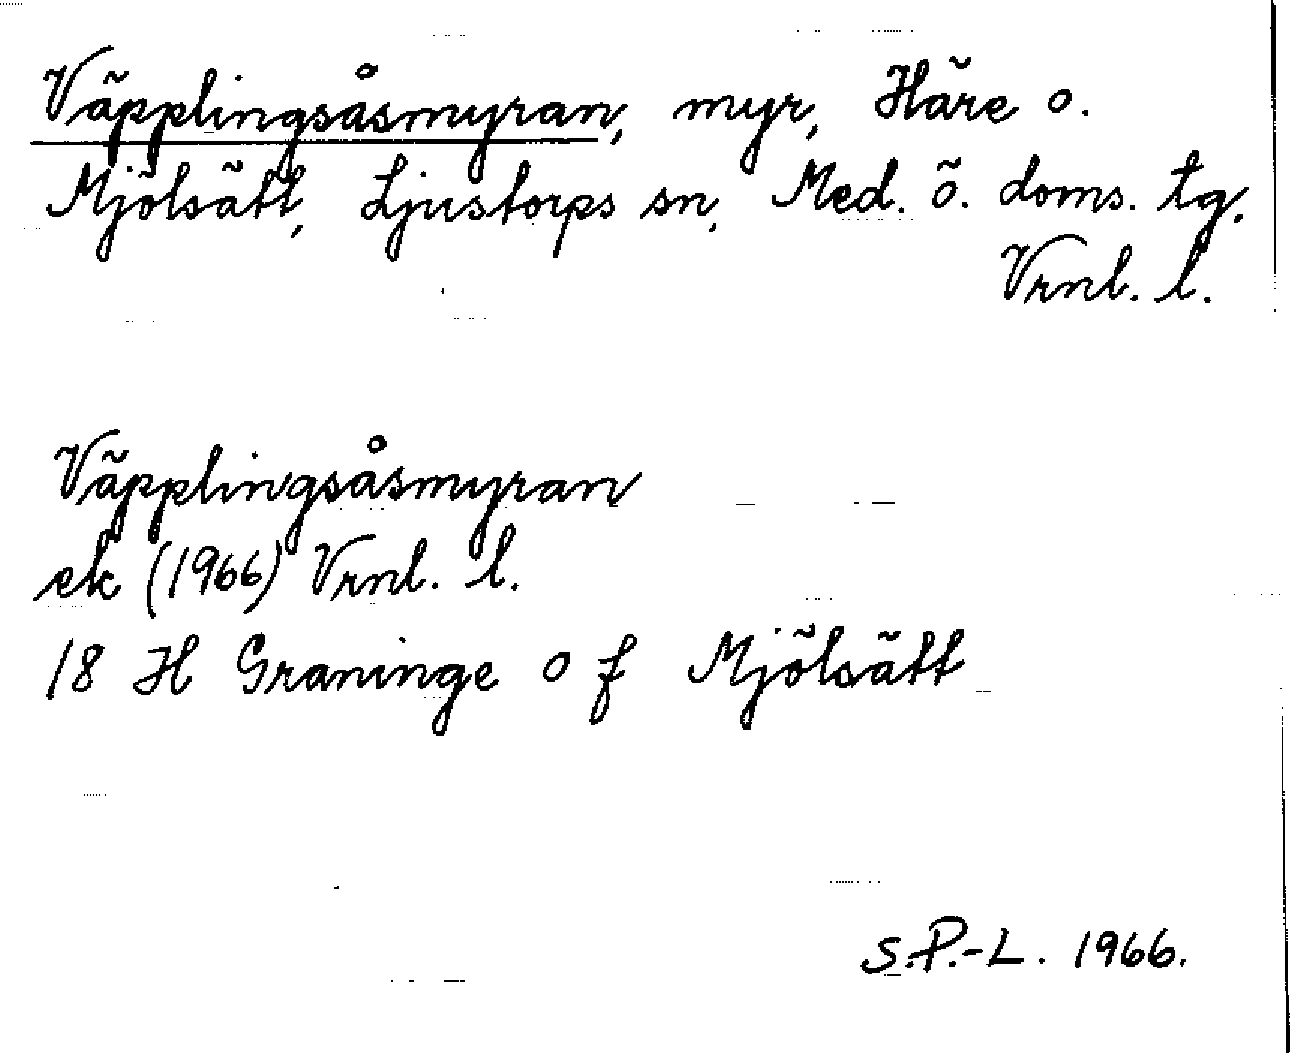 Väpplingsåsmyran, myr, Häre o.
Mjölsätt, Ljustorps sn, Med. ö. doms. tg.
Vrnl. l.
Väpplingsåsmyran
ek (1966) Vrnl. l.
18 H Graninge o f Mjölsätt
S.P.-L. 1966.